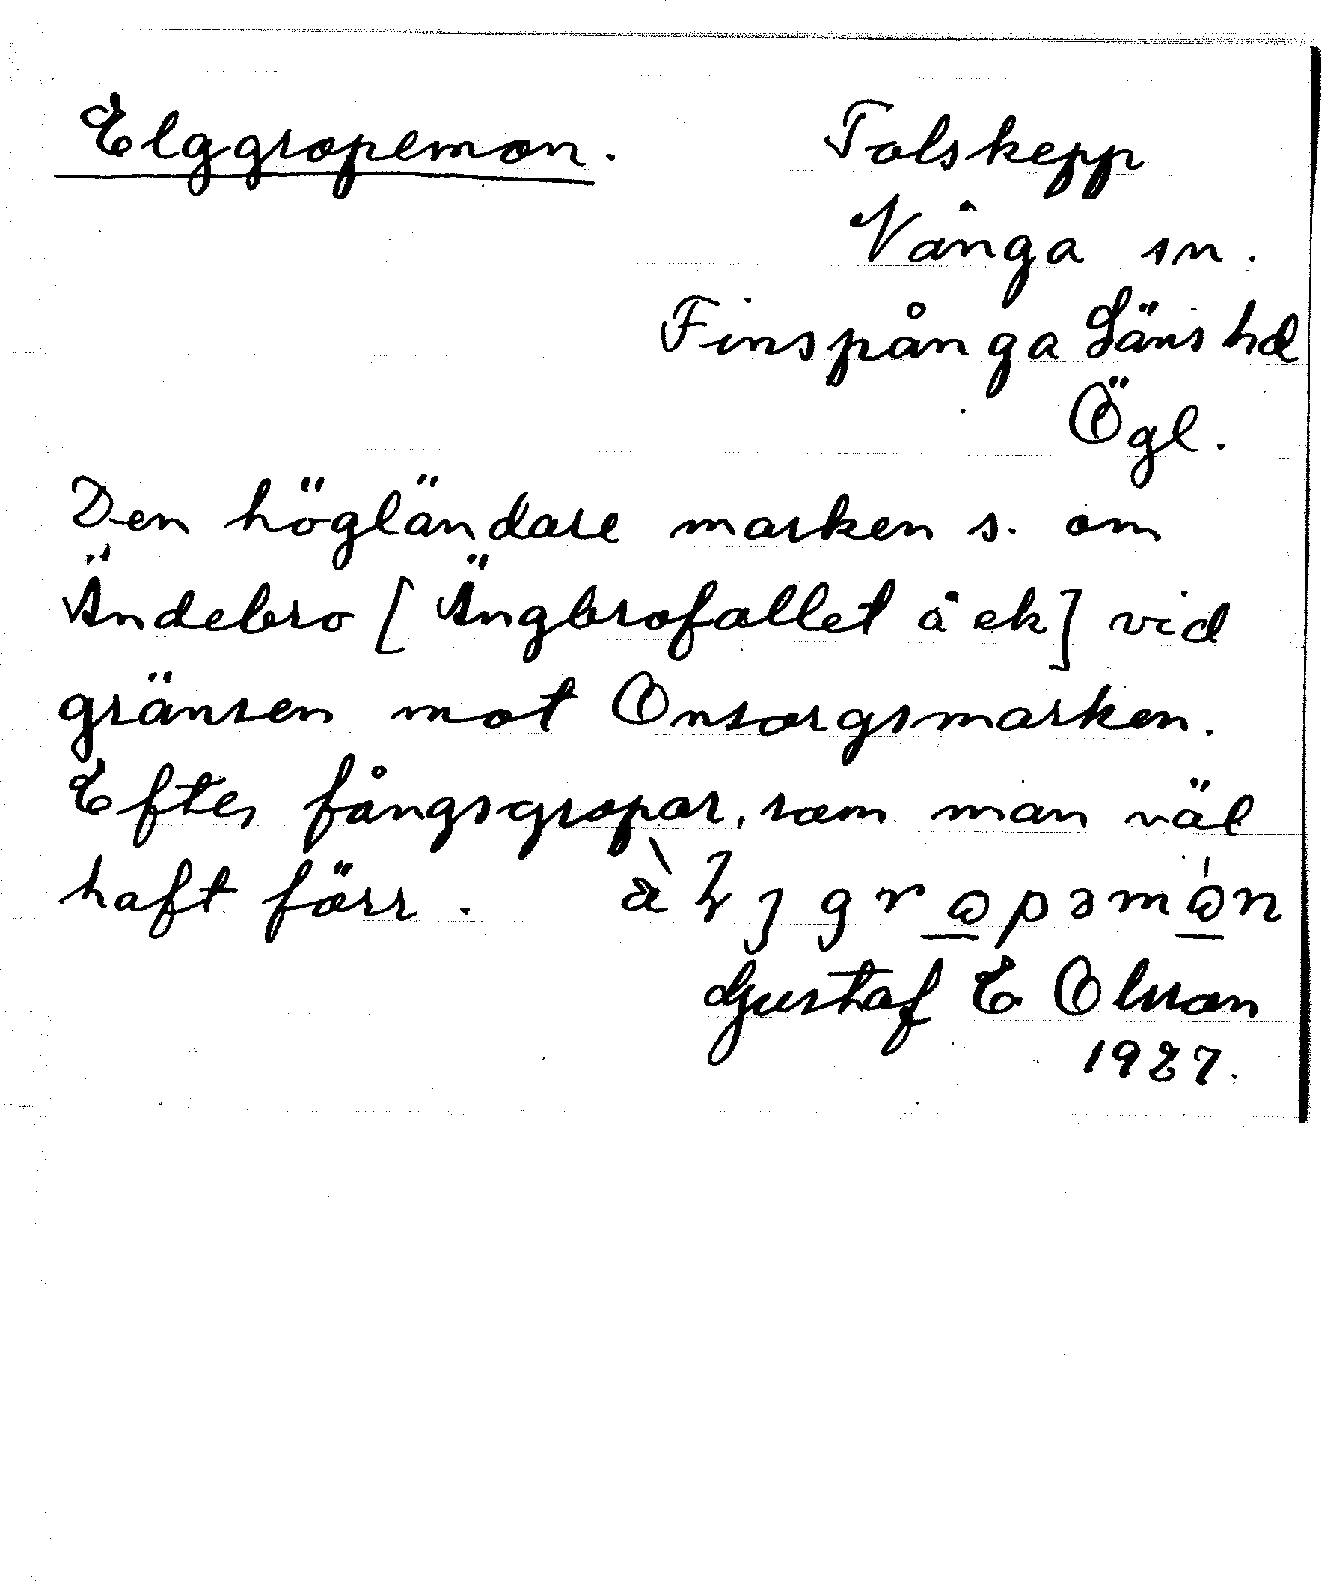 Elggropemon.
Tolskepp
Vånga sn.
Finspånga Läns hd
Ögl.
Den högländare marken s. om
Ändebro [Ängbrofallet å ek] vid
gränsen mot Onsorgsmarken.
Efter fångsgropar, som man väl
haft förr.
Gustaf E Olson
1927.